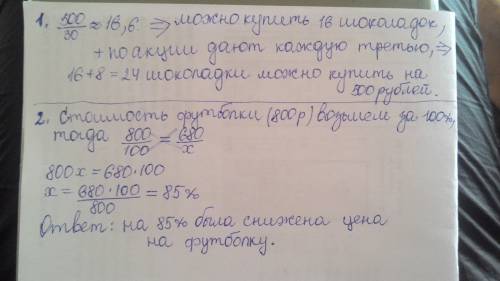 1. 500/30 ≈ 16,6 ⇒ можно купить 16 шоколадок,
+ по акции дают каждую третью, ⇒
16+8 = 24 шоколадки можно купить на
500 рублей.
2. Стоимость футболки (800р) возьмем за 100%,
тогда 800/100 = 680/x
800x = 680·100
x = 680·100/800 = 85%
Ответ: на 85% была снижена цена
на футболку.